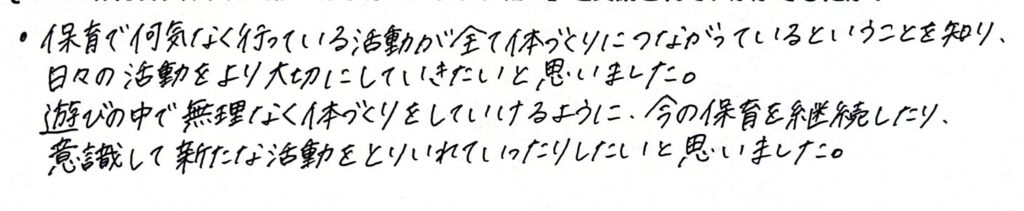 ・保育で何気なく行っている活動が全て体づくりにつながっているということを知り、
日々の活動をより大切にしていきたいと思いました。
遊びの中で無理なく体づくりをしていけるように、今の保育を継続したり、
意識して新たな活動をとりいれていったりしたいと思いました。